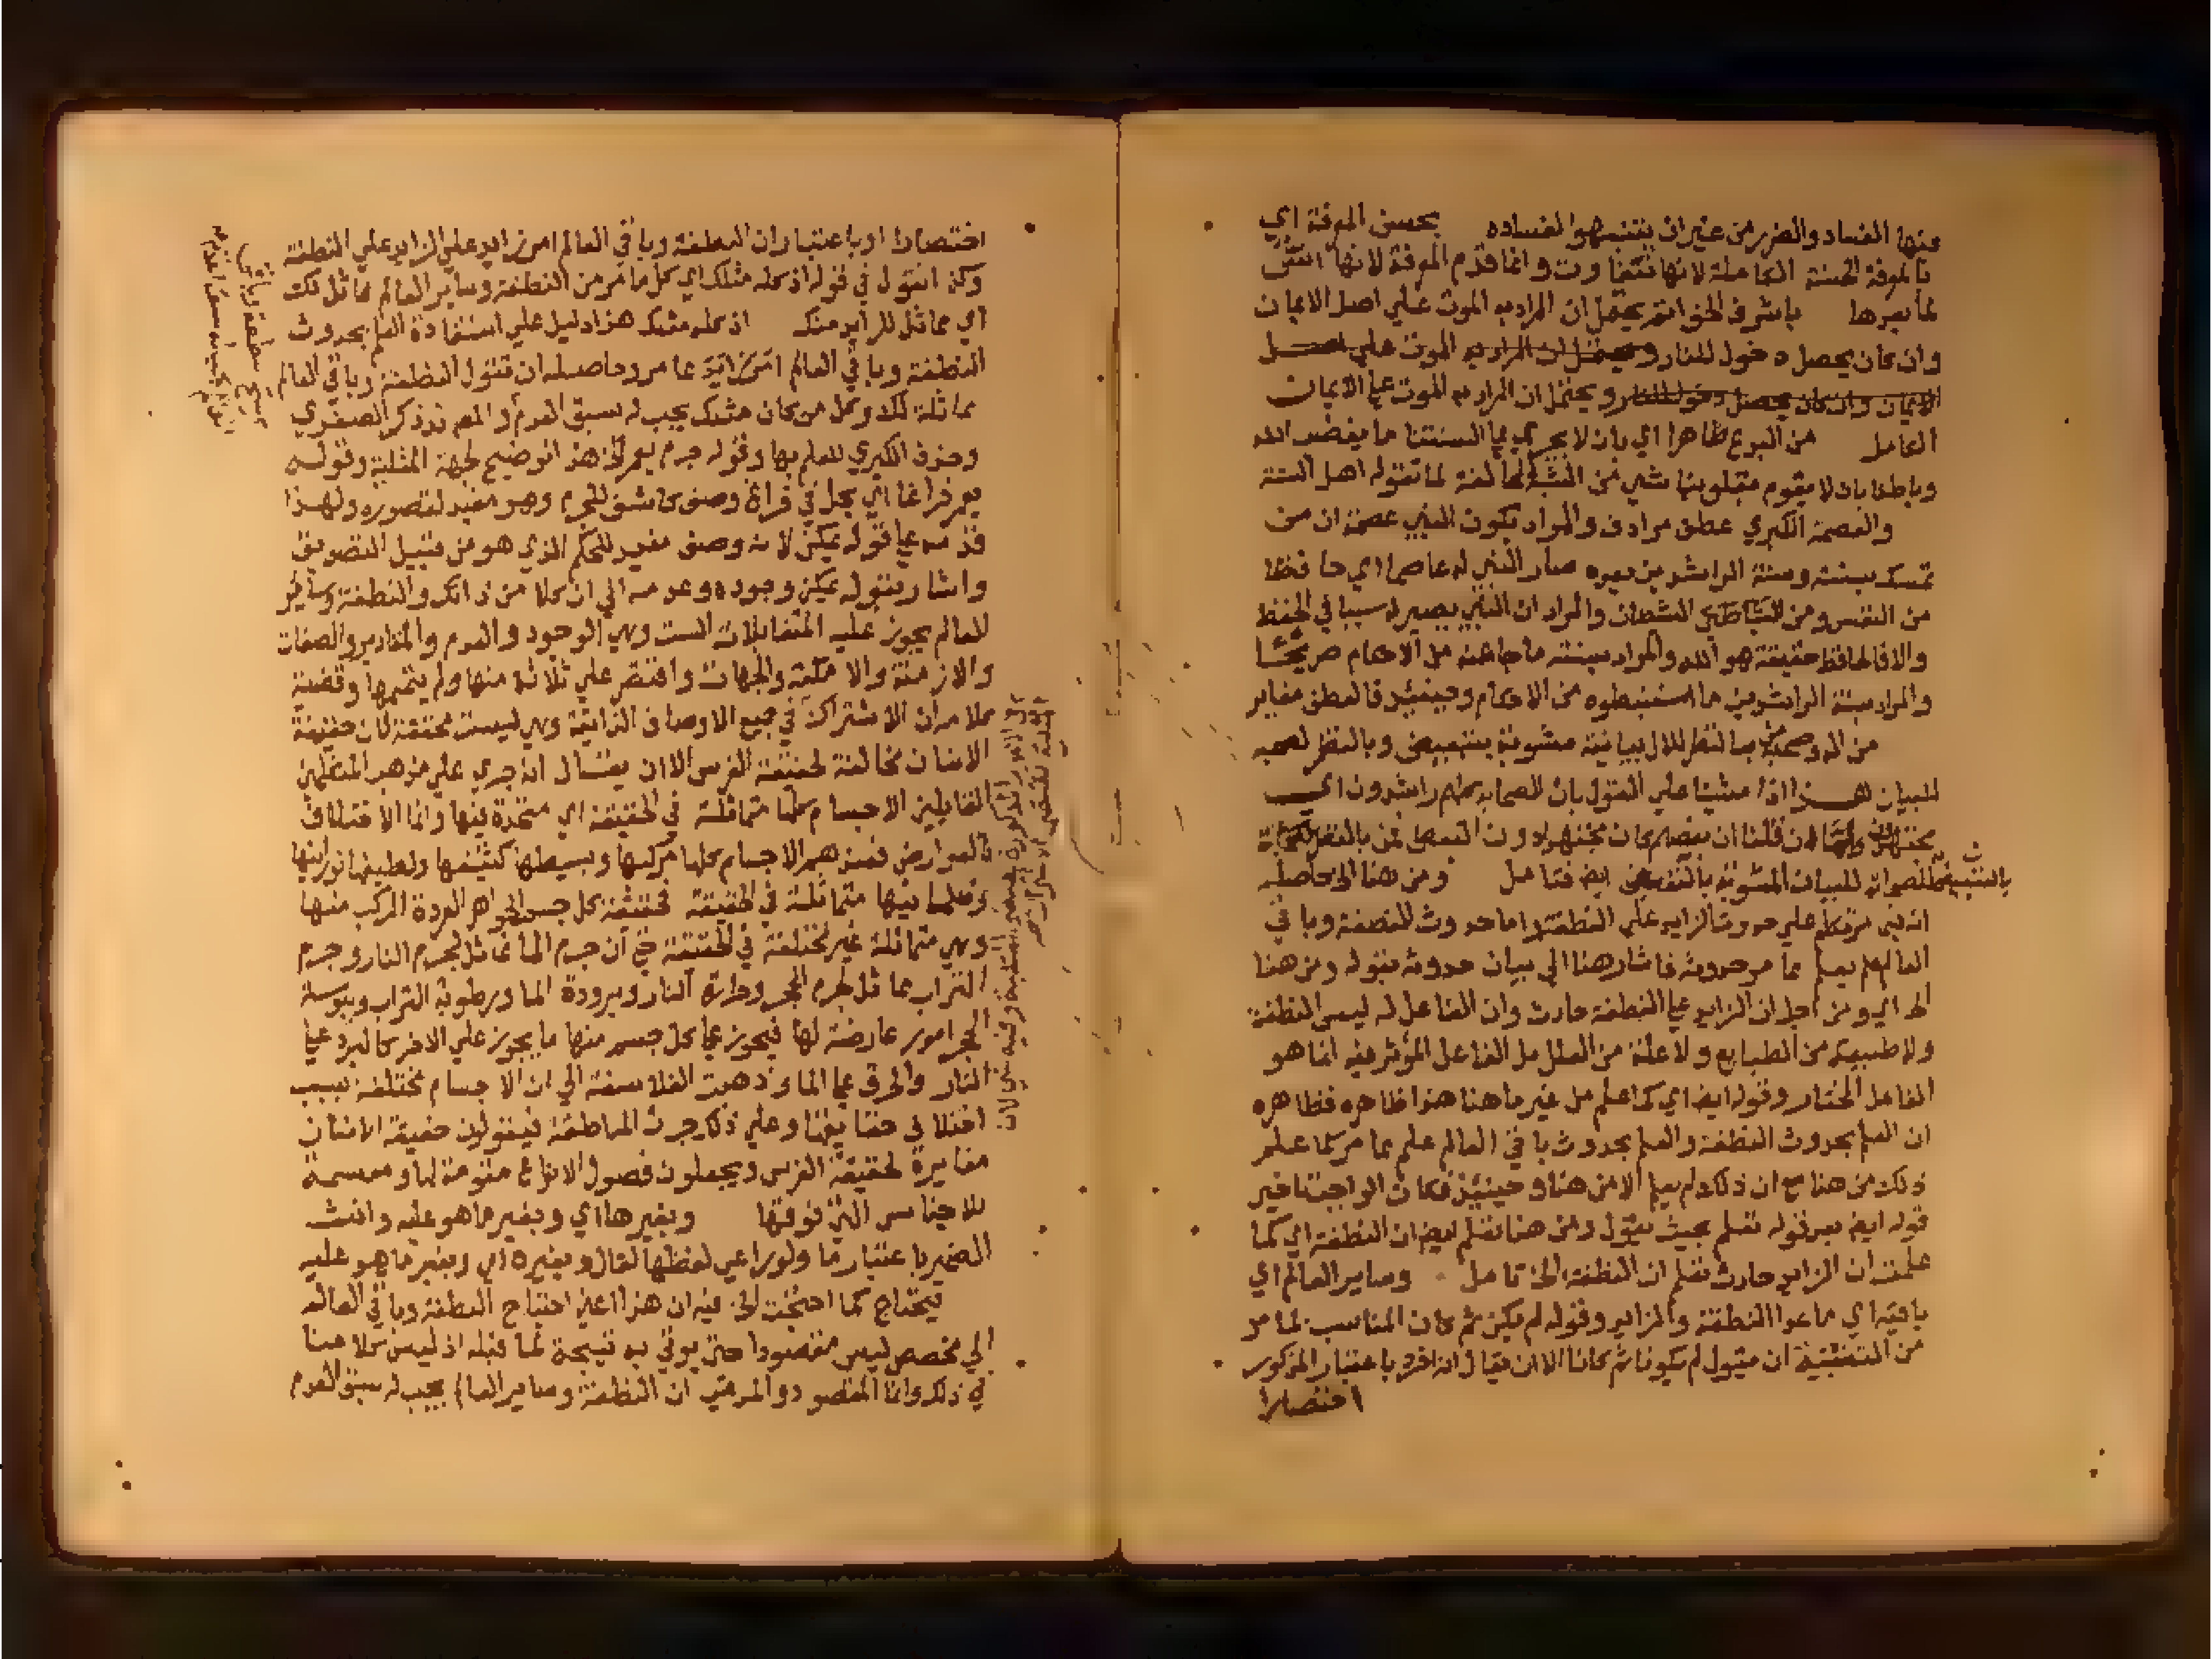 منها الفساد والضرر من غير ان تتنبهوا لفساده بحسن الموقة اي
بالموقة الحسنة الكاملة لانها تتفاوت وانما قدم الموقة لانها
لما بعدها يحتمل ان المراد به الموت علي اصل الايمان
وان كان يحصل دخول للنار ويحتمل ان المراد به الموت علي اصل
الايمان وان كان يحصل دخول للنار ويحتمل ان المراد به الموت علي الايمان
الكامل من البدع ظاهرا اي بان لا يجري علي السنتنا ما يغضب الله
وباطنا بان لا يقوم بقلوبنا شي من الشبه المخالفة لما تقوله اهل السنة
والعصمة الكبري عطف مرادف والمراد بكون النبي عصمة ان من
تمسك بسنته وسنة الراشدين بعده صار النبي له عاصما اي حافظا
من النفس ومن الشيطان والمراد ان النبي يصير له سببا في الحفظ
والا فالحافظ حقيقة هو الله والمراد بسنته ما جا عنه من الاحكام صريحا
والمراد بسنة الراشدين ما استنبطوه من الاحكام وحينئذ فالعطف مغاير
من اله وصحبه بالنظر للال بيانية مشوبة بتبعيض وبالنظر لصحبه
للبيان هذا اذا مشينا علي القول بان الصحابة كلهم راشدون اي
مجتهدون واما ان قلنا ان بعضهم كان مجتهدا دون البعض فمن بالنظر للصحابة
للبيان المشوبة بالتبعيض ايضا فتامل ومن هنا الخ حاصله
انه فيما مر تكلم علي حدوث الزايد علي النطفة واما حدوث النطفة وباقي
العالم فلم يعلم مما مر حدوثه فاشار هنا الي بيان حدوثه بقوله ومن هنا
الخ اي ومن اجل ان الزايد علي النطفة حادث وان الفاعل له ليس النطفة
ولا طبيعة من الطبايع ولا علة من العلل بل الفاعل المؤثر فيه انما هو
الفاعل المختار وقوله ايضا اي كما علم من غير ما هنا هذا ظاهره فظاهره
ان العلم بحدوث النطفة والعلم بحدوث باقي العالم علم مما مر كما علم
ذلك من هنا مع ان ذلك لم يعلم الا من هنا وحينئذ فكان الواجب تاخير
قوله ايضا بعد قوله تعلم بحيث يقول ومن هنا تعلم ايضا ان النطفة اي كما
علمت ان الزايد حادث تعلم ان النطفة الخ تامل وساير العالم اي
باقيه اي ما عدا النطفة والزايد وقوله لم يكن ثم كان المناسب لما مر
من التثنية ان يقول لم يكونا ثم كانا الا ان يقال انه افرد باعتبار المذكور
اختصارا
اختصارا او باعتبار ان النطفة وباقي العالم امر زايد علي الزايد علي النطفة
وكذا نقول في قوله اذ كله مثلك اي كل ما مر من النطفة وساير العالم مماثل لك
اي مماثل للزايد منك اذ كله مثلك هذا دليل علي استفادة العلم بحدوث
النطفة وباقي العالم مما مر وحاصله ان تقول النطفة وباقي العالم
مماثلة لك وكل من كان مثلك يجب له سبق العدم والمص ذكر الصغري
وحذف الكبري للعلم بها وقوله جرم يعمر الخ هذا توضيح لجهة المثلية وقوله
يعمر فراغا اي يحل في فراغ وصف كاشف للجرم وهو مفيد لتصوره ولهذا
قدمه علي قوله يمكن لانه وصف مفيد للحكم الذي هو من قبيل التصديق
واشار بقوله يمكن وجوده وعدمه الي ان كلا من ذاتك والنطفة وساير
العالم يجوز عليه المتقابلات الست وهي الوجود والعدم والمقادير والصفات
والازمنة والامكنة والجهات واقتصر علي ثلاثة منها ولم يتممها وقضية
كلامه ان الاشتراك في جميع الاوصاف الذاتية وهي ليست متحققة لان حقيقة
الانسان مخالفة لحقيقة الفرس الا ان يقال انه جري علي مذهب المتكلمين
القايلين الاجسام كلها متماثلة في الحقيقة اي متحدة فيها وانما الاختلاف
بالعوارض فعندهم الاجسام كلها مركبها وبسيطها كثيفها ولطيفها نورانيها
وظلمانيها متماثلة في الحقيقة فحقيقة كل جسم الجواهر الفردة المركب منها
وهي متماثلة غير مختلفة في الحقيقة حتي ان جرم الما مماثل لجرم النار وجرم
التراب مماثل لجرم الحجر وحرارة النار وبرودة الما ورطوبة التراب ويبوسة
الحجر امور عارضة لها فيجوز علي كل جسم منها ما يجوز علي الاخر كالبرد علي
النار والحرق علي الما وذهبت الفلاسفة الي ان الاجسام مختلفة بسبب
اختلاف حقايقها وعلي ذلك جرت المناطقة فيقولون حقيقة الانسان
مغايرة لحقيقة الفرس ويجعلون فصول الانواع مقومة لها ومقسمة
للاجناس التي فوقها وبغيرها اي وبغير ما هو عليه وانث
الضمير باعتبار ما ولو راعي لفظها لقال وبغيره اي وبغير ما هو عليه
يحتاج كما احتجت الخ فيه ان هذا اعني احتياج النطفة وباقي العالم
الي مخصص ليس مقصودا حتي يوتي به نتيجة لما قبله اذ ليس كلامنا
في ذلك وانما المقصود والمدعي ان النطفة وساير العالم يجب له سبق العدم